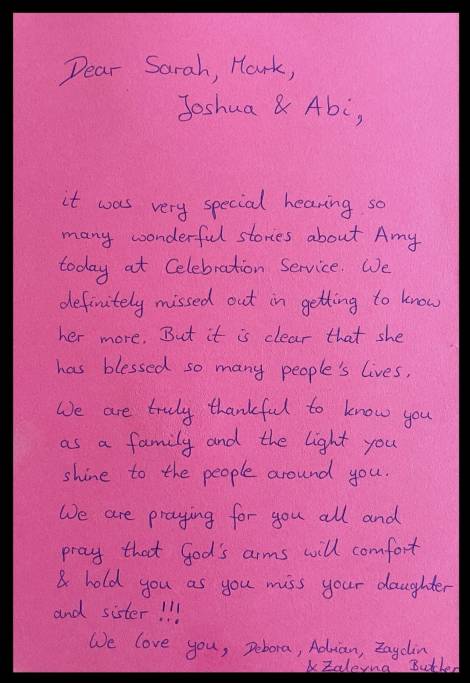 Dear Sarah, Mark,
Joshua & Abi,
it was very special hearing so
many wonderful stories about Amy
today at Celebration Service. We
definitely missed out in getting to know
her more. But it is clear that she
has blessed so many people's lives.
We are truly thankful to know you
as a family and the light you
shine to the people around you.
We are praying for you all and
pray that God's arms will comfort
& hold you as you miss your daughter
and sister!!!
We love you, Debora, Adrian, Zaydin
& Zaleyna Butcher